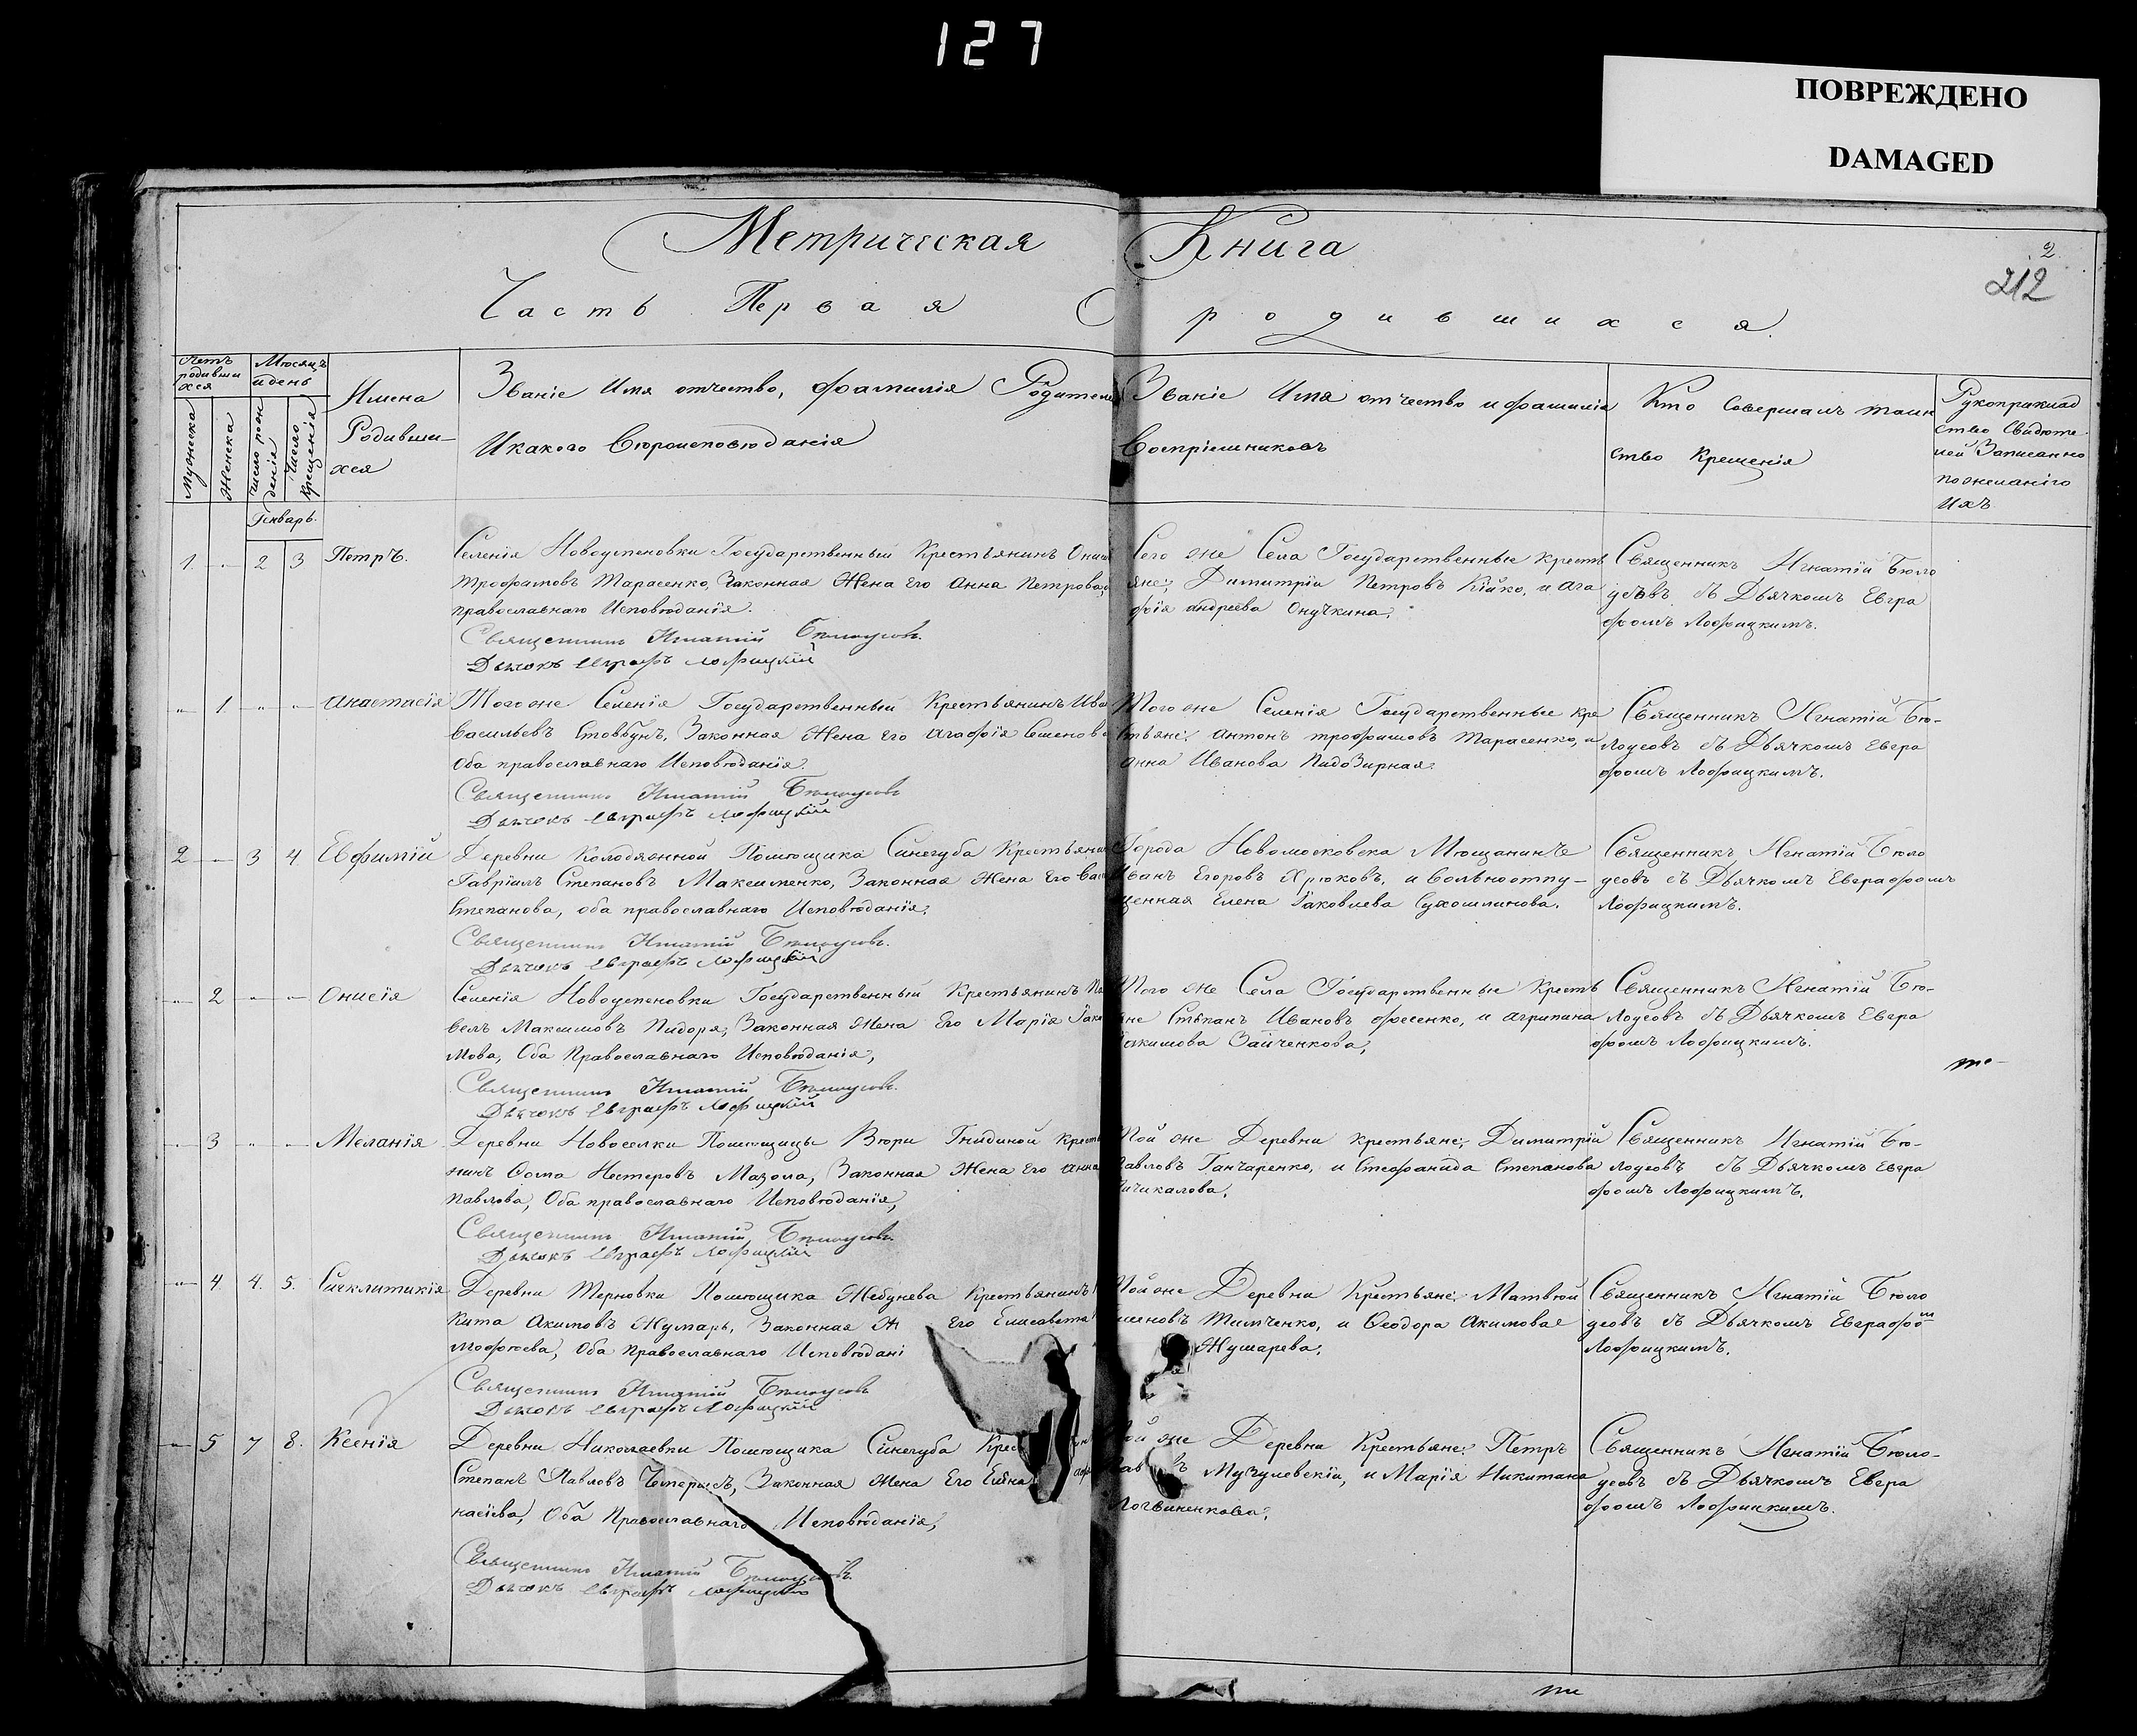 127
ПОВРЕЖДЕНО
DAMAGED
Метрическая Книга
2
212
Часть Первая О родившихся.
Мѣсяцъ
и день
Имена
Родивши-
хся
Званіе Имя отчество, фамилія Родителей
И какого Вѣроисповѣданія
Званіе Имя отчество и фамилія
Воспріемниковъ
Кто Совершалъ таин
ство Крещенія
Рукоприклад
ство Свидѣте
лей Записанно
по желанію
Ихъ
Мужеска
Женска
число рож
денія
Число
Крещенія
Генварь.
1. 2 3 Петръ.
Селенія Новоуспеновки Государственный Крестьянинъ
Трофимовъ Тарасенко, Законная Жена Его Анна Петрова,
православнаго Исповѣданія.
Священникъ Игнатій Бѣлоусовъ.
Дьячокъ Евграфъ Лофицкій
Сего же Села Государственные Кресть
яне; Димитрій Петровъ Кійко, и Ага
фія Андреева Онучкина.
Священникъ Игнатій Бѣло
усовъ съ Дьячкомъ Евгра
фомъ Лофицкимъ.
1 Анастасія
Того же Селенія Государственный Крестьянинъ Ива
Васильевъ Стовбунъ, Законная Жена Его Агафія Семенова
Оба православнаго Исповѣданія.
Священникъ Игнатій Бѣлоусовъ
Дьячокъ Евграфъ Лофицкій
Того же Селенія Государственные Кре
стьяне: Антонъ Трофимовъ Тарасенко, и
Анна Иванова Пидозирная.
Священникъ Игнатій Бѣ-
лоусовъ съ Дьячкомъ Евгра
фомъ Лофицкимъ.
2 3 4 Евфимій
Деревни Колодяжной Помѣщика Синегуба Крестьянинъ
Гавріилъ Степановъ Максименко, Законная Жена Его
Степанова, оба православнаго Исповѣданія.
Священникъ Игнатій Бѣлоусовъ.
Дьячокъ Евграфъ Лофицкій
Города Новомосковска Мѣщанинъ
Иванъ Егоровъ Крюковъ, и Вольноотпу-
щенная Елена Яковлева Сухошлинова.
Священникъ Игнатій Бѣло
усовъ съ Дьячкомъ Евграфомъ
Лофицкимъ.
2 Онисія
Селенія Новоуспеновки Государственный Крестьянинъ Па
велъ Максимовъ Пидоря, Законная Жена Его Марія
мова, Оба Православнаго Исповѣданія,
Священникъ Игнатій Бѣлоусовъ.
Дьячокъ Евграфъ Лофицкій
Того же Села Государственные Кресть
яне Стѣпанъ Ивановъ Фесенко, и Агрипина
Зайченкова,
Священникъ Игнатій Бѣ-
лоусовъ съ Дьячкомъ Евгра
фомъ Лофицкимъ.
3 Меланія
Деревни Новоселки Помѣщицы Вѣри Гнидиной Крестья
нинъ Фома Нестеровъ Мазола, Законная Жена Его Анна
Павлова, Оба православнаго Исповѣданія,
Священникъ Игнатій Бѣлоусовъ
Дьячокъ Евграфъ Лофицкій
Той же Деревни Крестьяне; Димитрій
Павловъ Ганчаренко, и Стефанида Степанова
Чичкалова.
Священникъ Игнатій Бѣ-
лоусовъ съ Дьячкомъ Евгра
фомъ Лофицкимъ.
4 4. 5. Сигклитикія
Деревни Терновки Помѣщика Жебунева Крестьянинъ
кита Акимовъ Жумарь, Законная Ж Его Елисавета
Оба Православнаго Исповѣдані
Священникъ Игнатій Бѣлоусовъ
Дьячокъ Евграфъ Лофицкій
Той же Деревни Крестьяне; Матвѣй
Семеновъ Тимченко, и Феодора Акимовае
Жумарева.
Священникъ Игнатій Бѣло
усовъ съ Дьячкомъ Евграфом
Лофицкимъ.
5 7 8. Ксенія
Деревни Николаевки Помѣщика Синегуба Крес
Степанъ Павловъ Законная Жена Его Елена
насіева, Оба Православнаго Исповѣданія,
Священникъ Игнатій Бѣлоусовъ.
Дьячокъ Евграфъ Лофицкій
Той же Деревни Крестьяне: Петръ
Мучулевскій, и Марія Никитина
Логвиненкова.
Священникъ Игнатій Бѣло-
усовъ съ Дьячкомъ Евгра
фомъ Лофицкимъ.